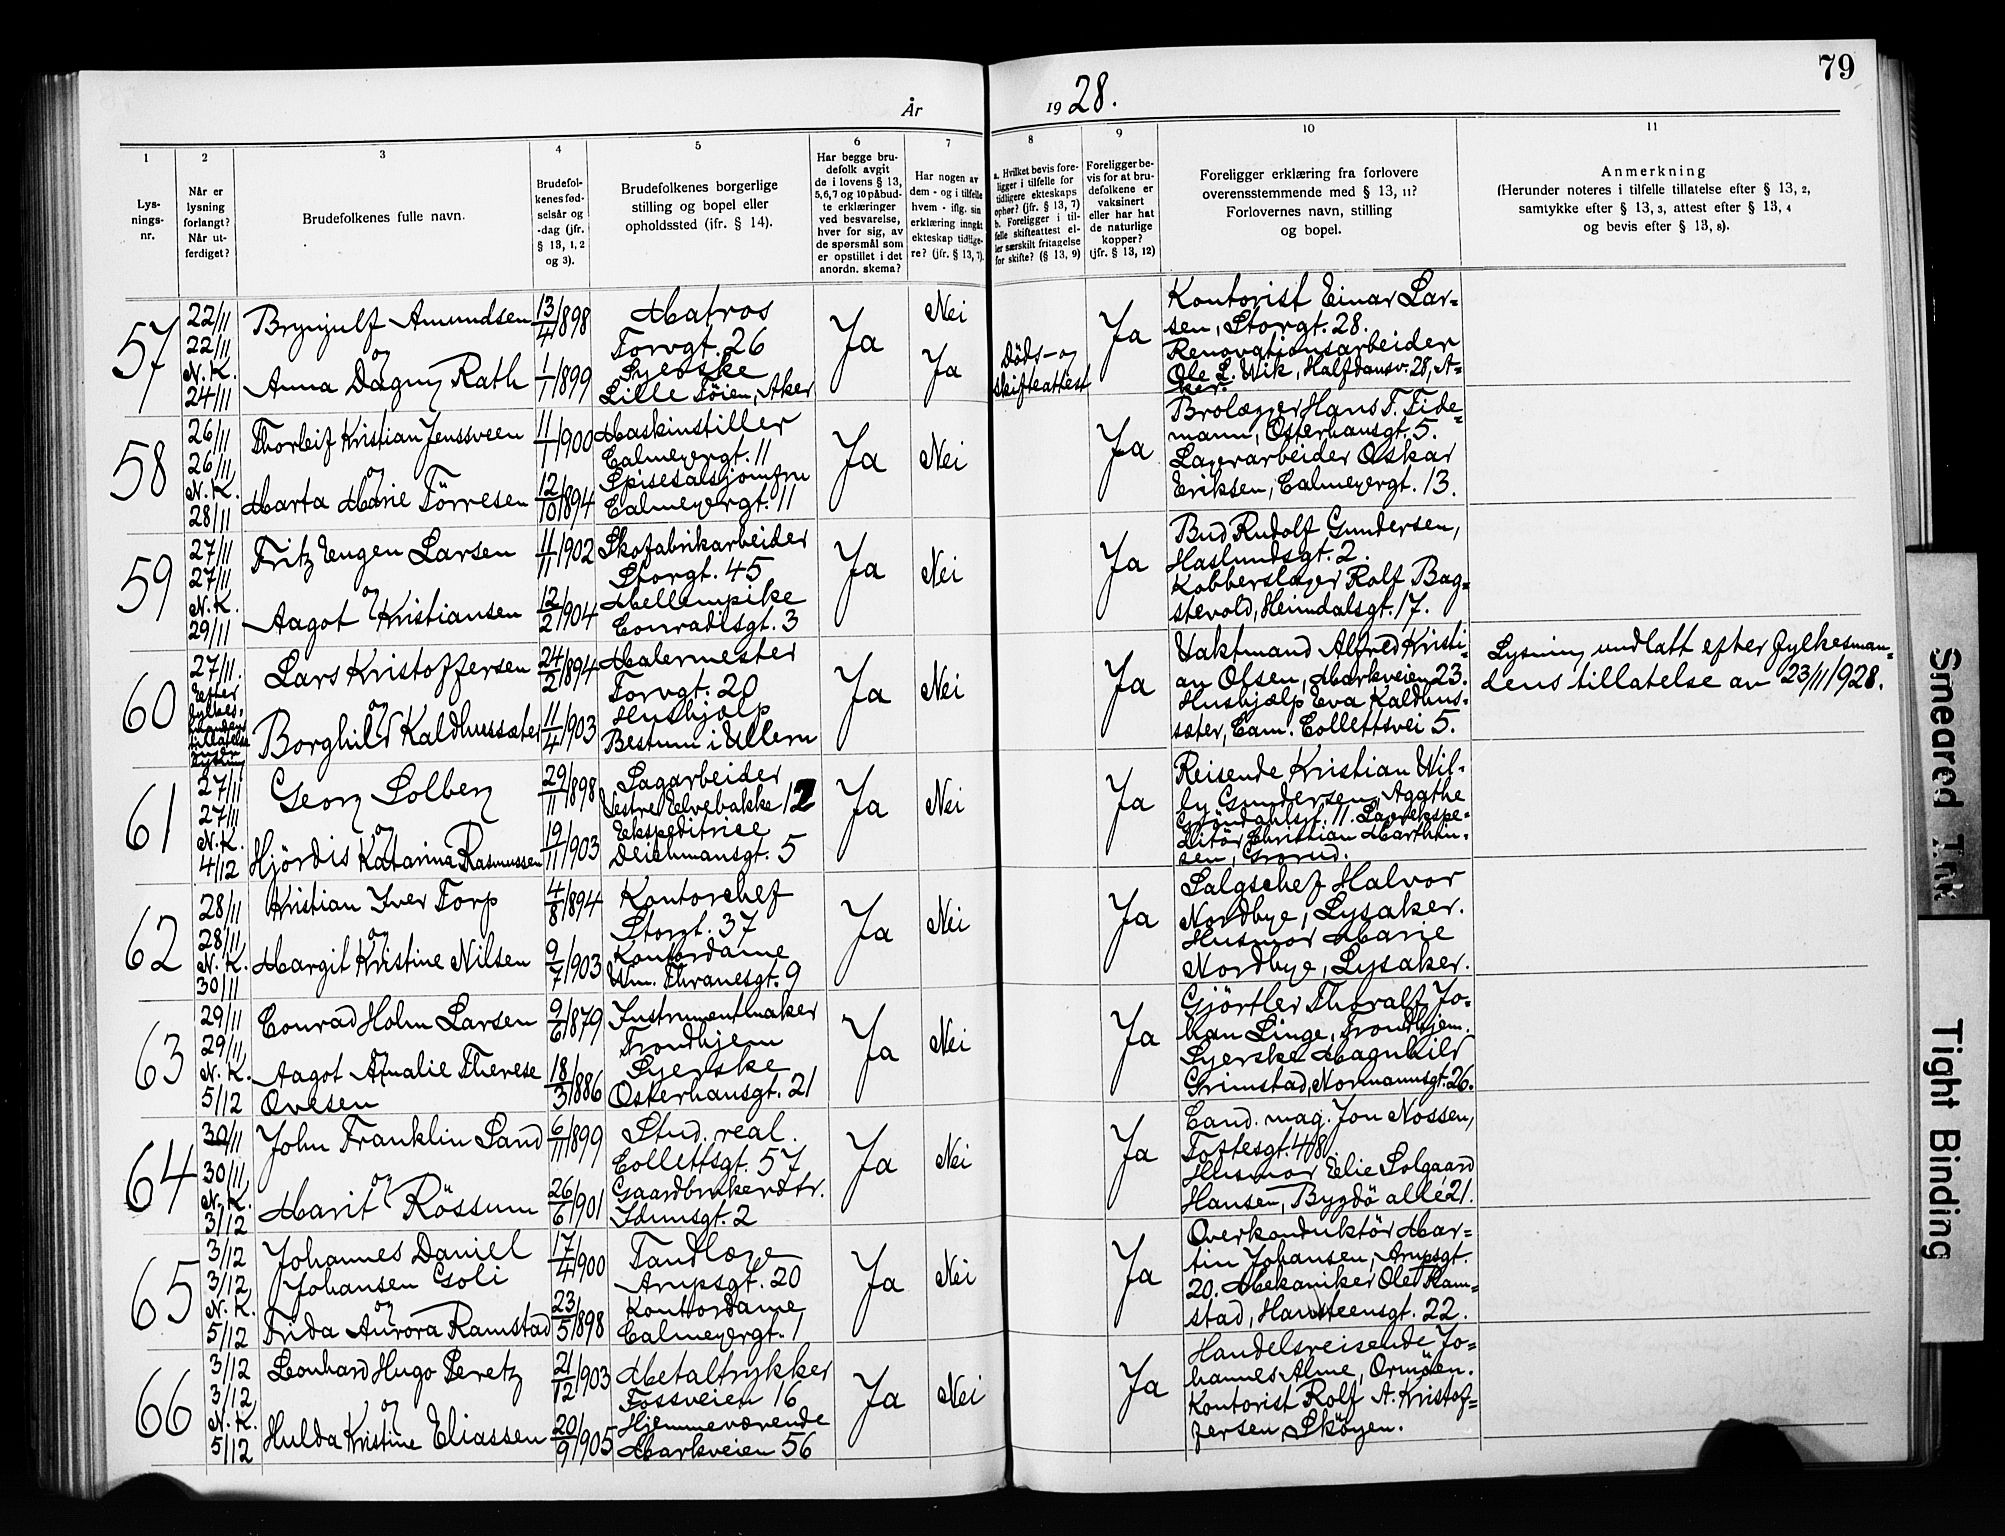 79
År 1928.
1
2
3
4
5
6
7
8
9
10
11
Lys-
nings-
nr.
Når er
lysning
forlangt?
Når ut-
ferdiget?
Brudefolkenes fulle navn.
Brudefol-
kenes fød-
selsår og
-dag (jfr.
§ 13, 1, 2
og 3).
Brudefolkenes borgerlige
stilling og bopel eller
opholdssted (ifr. § 14).
Har begge bru-
defolk avgit
de i lovens § 13,
5, 6, 7 og 10 påbud-
te erklæringer
ved besvarelse,
hver for sig, av
de spørsmål som
er opstillet i det
anordn. skema?
Har nogen av
dem - og i tilfelle
hvem - iflg. sin
erklæring inngåt
ekteskap tidlige-
re? (jfr. § 13, 7).
a. Hvilket bevis fore-
ligger i tilfelle for
tidligere ekteskaps
ophør? (jfr. § 13, 7)
b. Foreligger i til-
felle skifteattest el-
ler særskilt fritagelse
for skifte? (§ 13, 9)
Foreligger be-
vis for at bru-
defolkene er
vaksinert
eller har hat
de naturlige
kopper?
(jfr. § 13, 12)
Foreligger erklæring fra forlovere
overensstemmende med § 13, 11?
Forlovernes navn, stilling
og bopel.
Anmerkning
(Herunder noteres i tilfelle tillatelse efter § 13, 2,
samtykke efter § 13, 3, attest efter § 13, 4
og bevis efter § 13, 8).
57
22/11
22/11
N. K.
24/11
Brynjulf Amundsen
og
Anna Dagny Rath
13/4 1898
1/1 1899
Matros
Torvgt. 26
Syerske
Lille Töien, Aker
Ja
Nei
Ja
Döds- og
skifteattest
Ja
Kontorist Einar Lar-
sen, Storgt. 28.
Renovationsarbeider
Ole L. Wik, Halfdansv. 28, A-
ker.
58
26/11
26/11
N. K.
28/11
Thorleif Kristian Jenssveen
og
Marta Marie Törresen
11/1 1900
12/10 1894
Maskinstiller
Calmeyergt. 11
Spisesalsjomfru
Calmeyergt. 11
Ja
Nei
Ja
Brolægger Hans T. Tide-
mann, Osterhausgt. 5.
Lagerarbeider Oskar
Eriksen, Calmeyergt. 13.
59
27/11
27/11
N. K.
29/11
Fritz Eugen Larsen
og
Aagot Kristiansen
11/11 1902
12/2 1904
Skofabrikarbeider
Storgt. 45
Mellempike
Conradisgt. 3
Ja
Nei
Ja
Bud Rudolf Gundersen,
Haslundsgt. 2.
Kobberslager Rolf Bag-
stevold, Heimdalsgt. 17.
60
27/11.
Efter
fylkes-
mandens
tillatelse
Lars Kristoffersen
og
Borghild Kaldhussæter
24/2 1894
11/4 1903
Malermester
Torvgt. 20
Hushjælp
Bestum i Ullern
Ja
Nei
Ja
Vaktmand Alfred Kristi-
an Olsen, Markveien 23.
Hushjælp Eva Kaldhus-
sæter, Cam. Collettsvei 5.
Lysning undlatt efter fylkesman-
dens tillatelse av 23/11 1928.
61
27/11
27/11
N. K.
4/12
Georg Solberg
og
Hjördis Katarina Rasmussen
29/11 1898
19/11 1903
Sagarbeider
Vestre Elvebakke 12
Ekspeditrise
Deichmansgt. 5
Ja
Nei
Ja
Reisende Kristian Wil-
ly Gundersen, Agathe
Gröndahlsgt. 11. Lagerekspe-
ditör Christian Marthin-
sen, Grorud.
62
28/11
28/11
N. K.
30/11
Kristian Iver Torp
og
Margit Kristine Nilsen
4/8 1894
9/7 1903
Kontorchef
Storgt. 37
Kontordame
Wm. Thranesgt. 9
Ja
Nei
Ja
Salgschef Halvor
Nordbye, Lysaker.
Husmor Marie
Nordbye, Lysaker.
63
29/11
29/11
N. K.
5/12
Conrad Holm Larsen
og
Aagot Amalie Therese
Ovesen
9/6 1879
18/3 1886
Instrumentmaker
Trondhjem
Syerske
Osterhausgt. 21
Ja
Nei
Ja
Gjörtler Thoralf Jo-
han Linge, Trondhjem.
Syerske Magnhild
Grimstad, Normannsgt. 26.
64
30/11
30/11
N. K.
3/12
John Franklin Sand
og
Marit Rössum
6/11 1899
26/6 1901
Stud. real.
Collettsgt. 57
Gaardbrukerdtr.
Idunsgt. 2
Ja
Nei
Ja
Cand. mag. Jon Nossen,
Toftesgt. 48
Husmor Elie Solgaard
Hansen, Bygdö allé 21.
65
3/12
3/12
N. K.
5/12
Johannes Daniel
Johansen Goli
og
Frida Aurora Ramstad
17/4 1900
23/5 1898
Tandlæge
Arupsgt. 20
Kontordame
Calmeyergt. 1
Ja
Nei
Ja
Overkonduktör Mar-
tin Johansen, Arupsgt.
20. Mekaniker Ole Ram-
stad, Hansteensgt. 22.
66
3/12
3/12
N. K.
5/12
Leonhard Hugo Peretz
og
Hulda Kristine Eliassen
21/12 1903
20/9 1905
Metaltrykker
Fossveien 16
Hjemmeværende
Markveien 56
Ja
Nei
Ja
Handelsreisende Jo-
hannes Alme, Ormöen.
Kontorist Rolf A. Kristof-
fersen, Sköyen.
Smeared Ink
Tight Binding